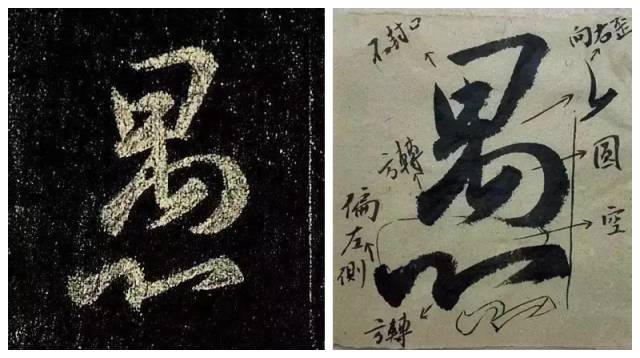 愚
愚
不封口
向右歪
方轉
圆
偏左側
空
方轉